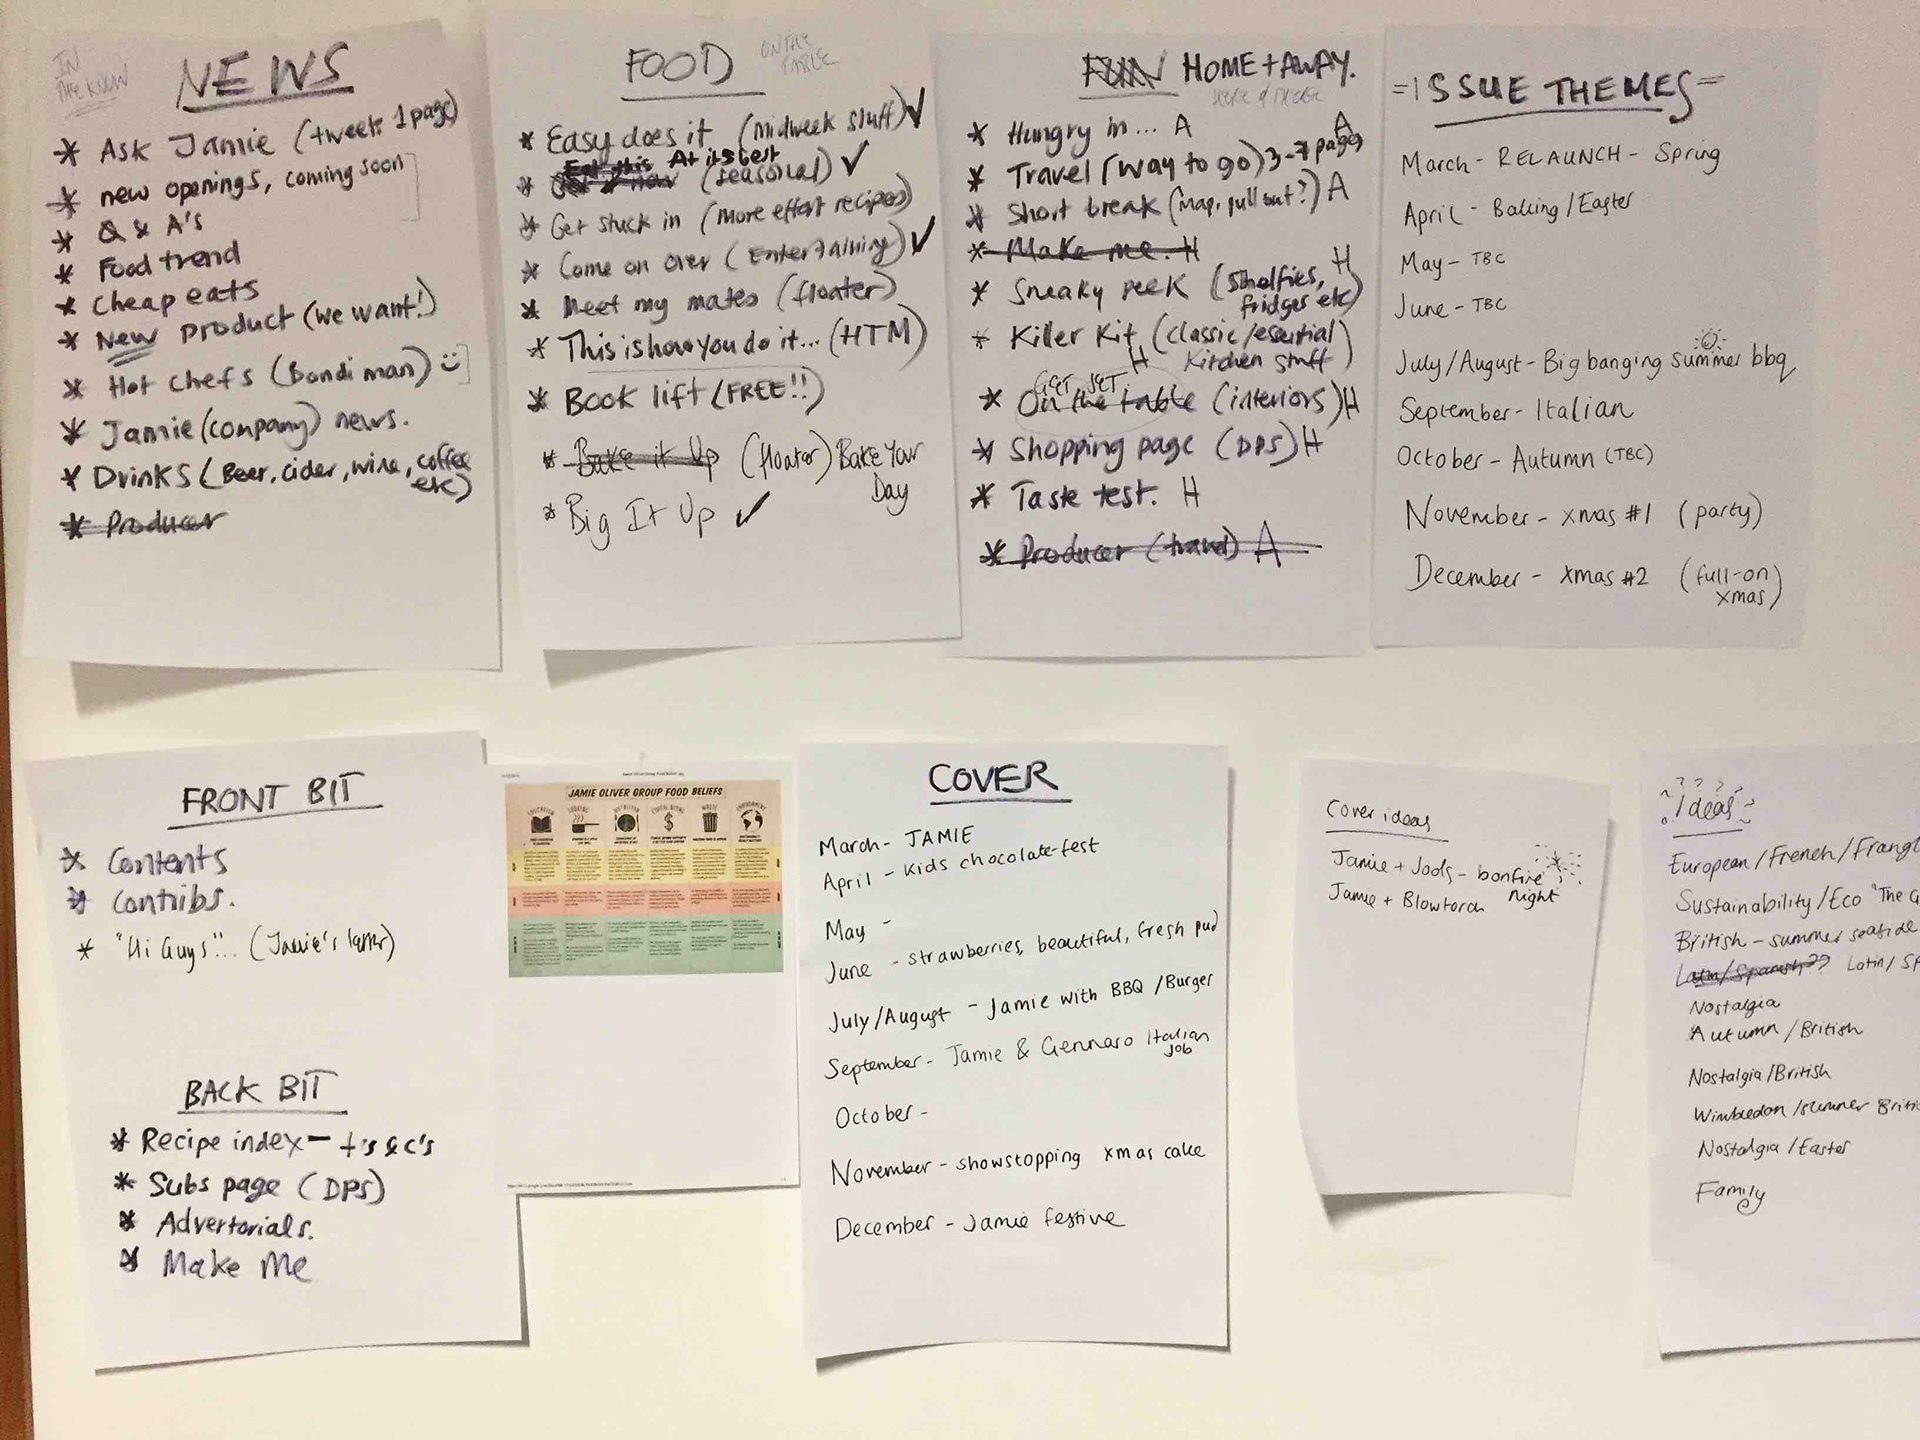 IN
THE KNOW
NEWS
* Ask Jamie (tweets 1 page)
* new openings, coming soon
* Q & A's
* Food trend
* Cheap eats
* New product (we want!)
* Hot Chefs (Bondi man)
* Jamie (company) news.
* Drinks (Beer, cider, wine, coffee
etc)
* Producer
FOOD
ON THE
TABLE
* Easy does it (Midweek stuff) ✓
Eat this At its best
* now (seasonal) ✓
* Get stuck in (More effort recipes)
* Come on over (Entertaining) ✓
* Meet my mates (floater)
* This is how you do it... (HTM)
* Book lift (FREE!!)
* Bake it Up (floater) Bake Your
Day
* Big It Up ✓
FUN HOME + AWAY.
HERE & THERE
* Hungry in... A
* Travel (Way to go) 3-7 pages A
* Short break (Map, pull out?) A
* Make me. H
* Sneaky peek (Shelfies, H
fridges etc)
* Killer Kit (classic/essential
H Kitchen stuff)
GET SET
* On the table (interiors) H
* Shopping page (DPS) H
* Taste test. H
* Producer (travel) A
=ISSUE THEMES=
March - RELAUNCH - Spring
April - Baking/Easter
May - TBC
June - TBC
July/August - Big banging summer bbq
September - Italian
October - Autumn (TBC)
November - xmas #1 (party)
December - xmas #2 (full-on
xmas)
FRONT BIT
* Contents
* Contribs.
* "Hi Guys"... (Jamie's letter)
BACK BIT
* Recipe index - t's & c's
* Subs page (DPS)
* Advertorials.
* Make Me
JAMIE OLIVER GROUP FOOD BELIEFS
COVER
March - JAMIE
April - Kids chocolate-fest
May -
June - strawberries, beautiful, fresh pud
July/August - Jamie with BBQ/Burger
September - Jamie & Gennaro Italian
Job
October -
November - showstopping xmas cake
December - Jamie festive
Cover ideas
Jamie + Jools - bonfire
night
Jamie + Blowtorch
? ? ? ?
Ideas
European/French/Frangl
Sustainability/Eco "The G
British - summer seaside
Latin/Spanish?? Latin/Sp
Nostalgia
Autumn/British
Nostalgia/British
Wimbledon/summer Briti
Nostalgia/Easter
Family